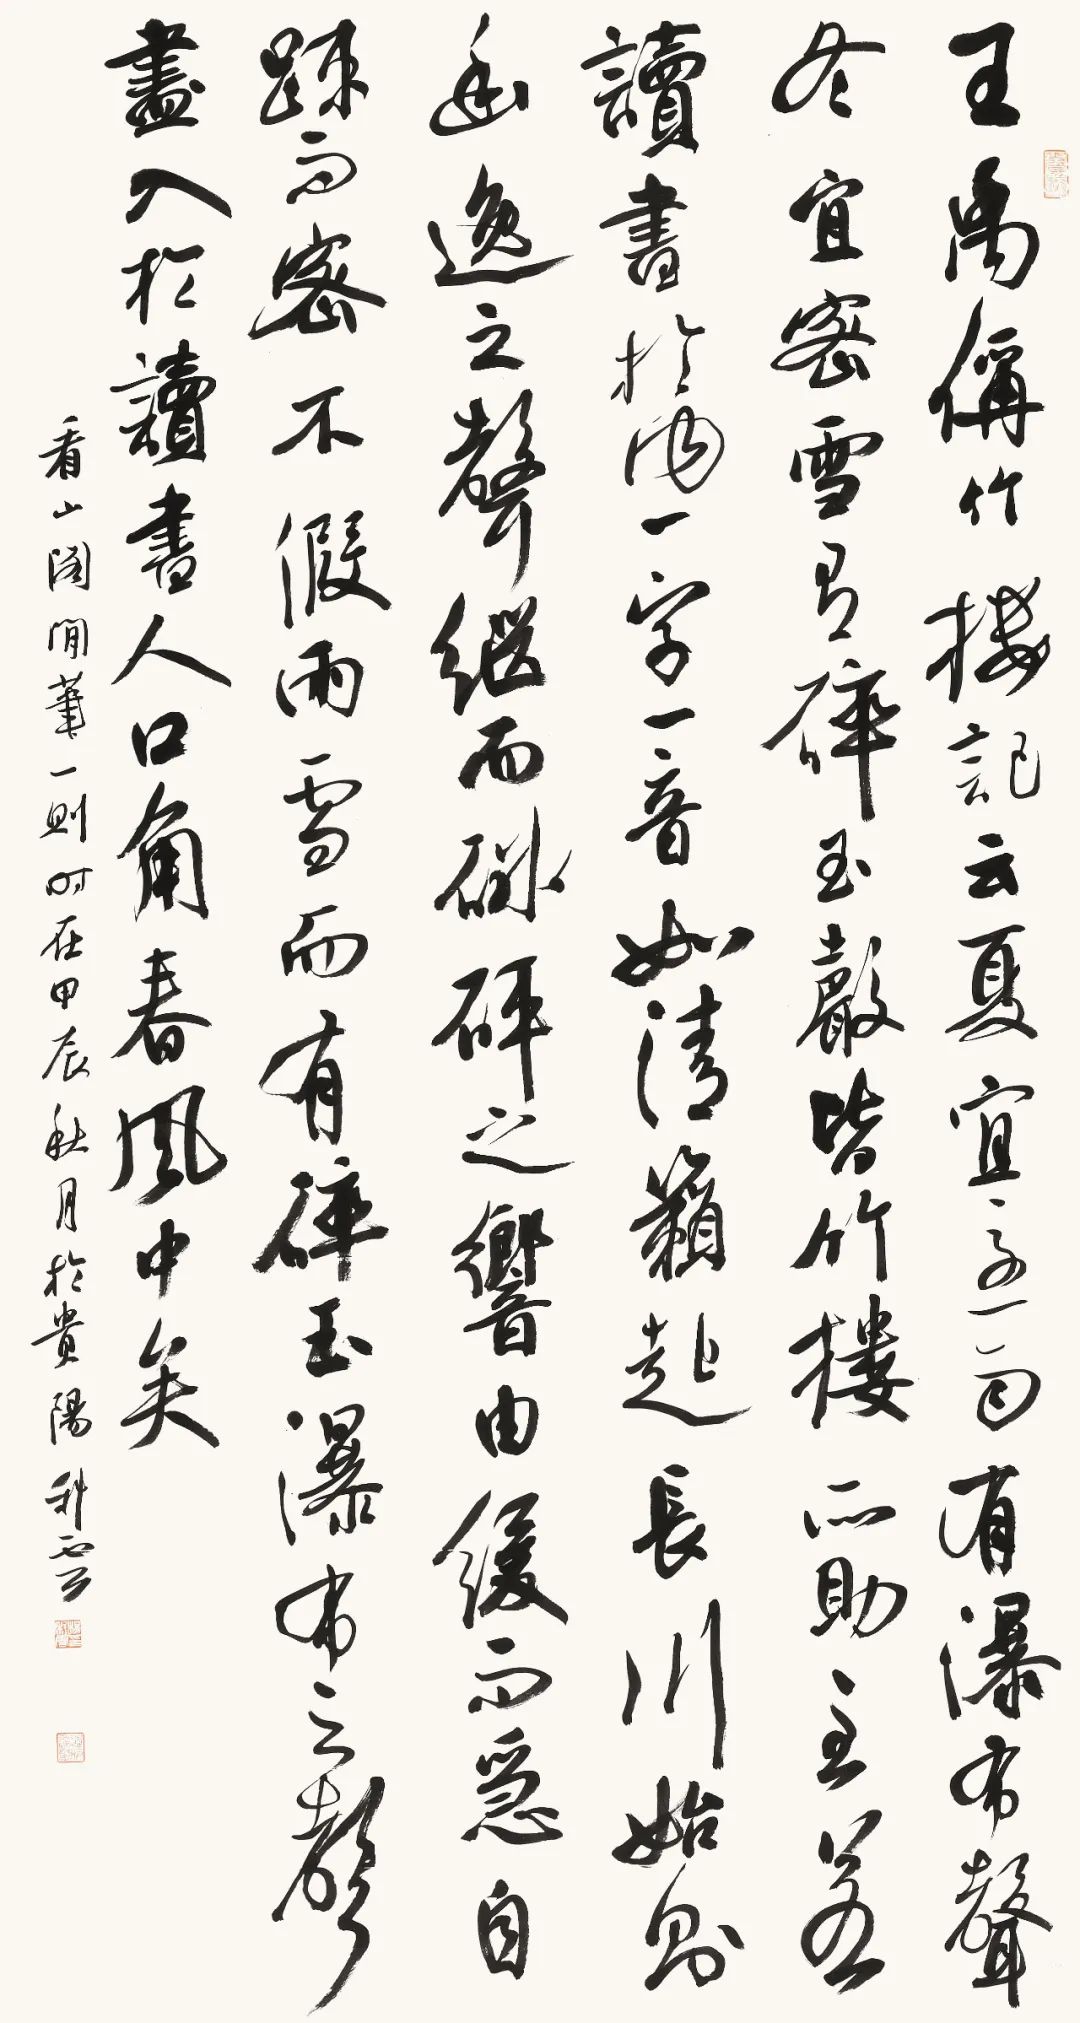 王禹偁竹楼記云夏宜急雨有瀑布聲
冬宜密雪有碎玉聲皆竹樓所助至若
讀書於內一字一音如清籟起長川始則
幽逸之聲繼而砯砰之響由緩而急自
疎而密不假雨雪而有碎玉瀑布之聲
盡入於讀書人口角春風中矣
看山閣閒筆一則時在甲辰秋月於貴陽利雲